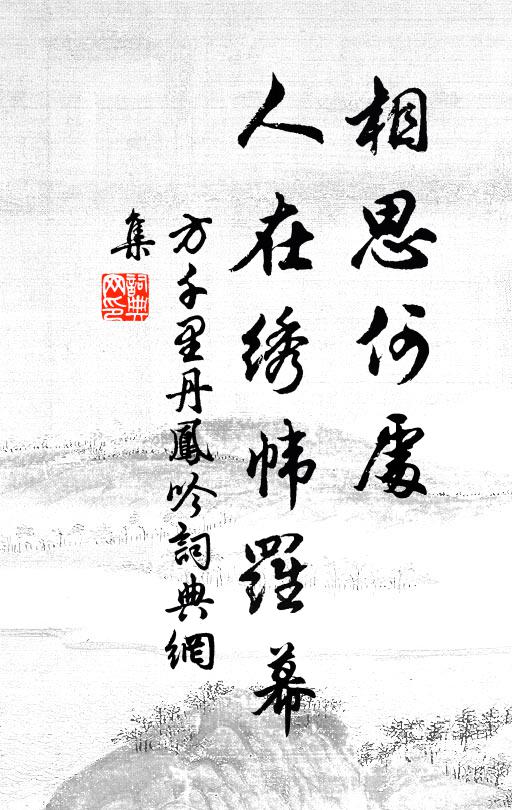 相思何處
人在绣幃羅幕
方千里丹鳳吟詞典網
集
詞典网印